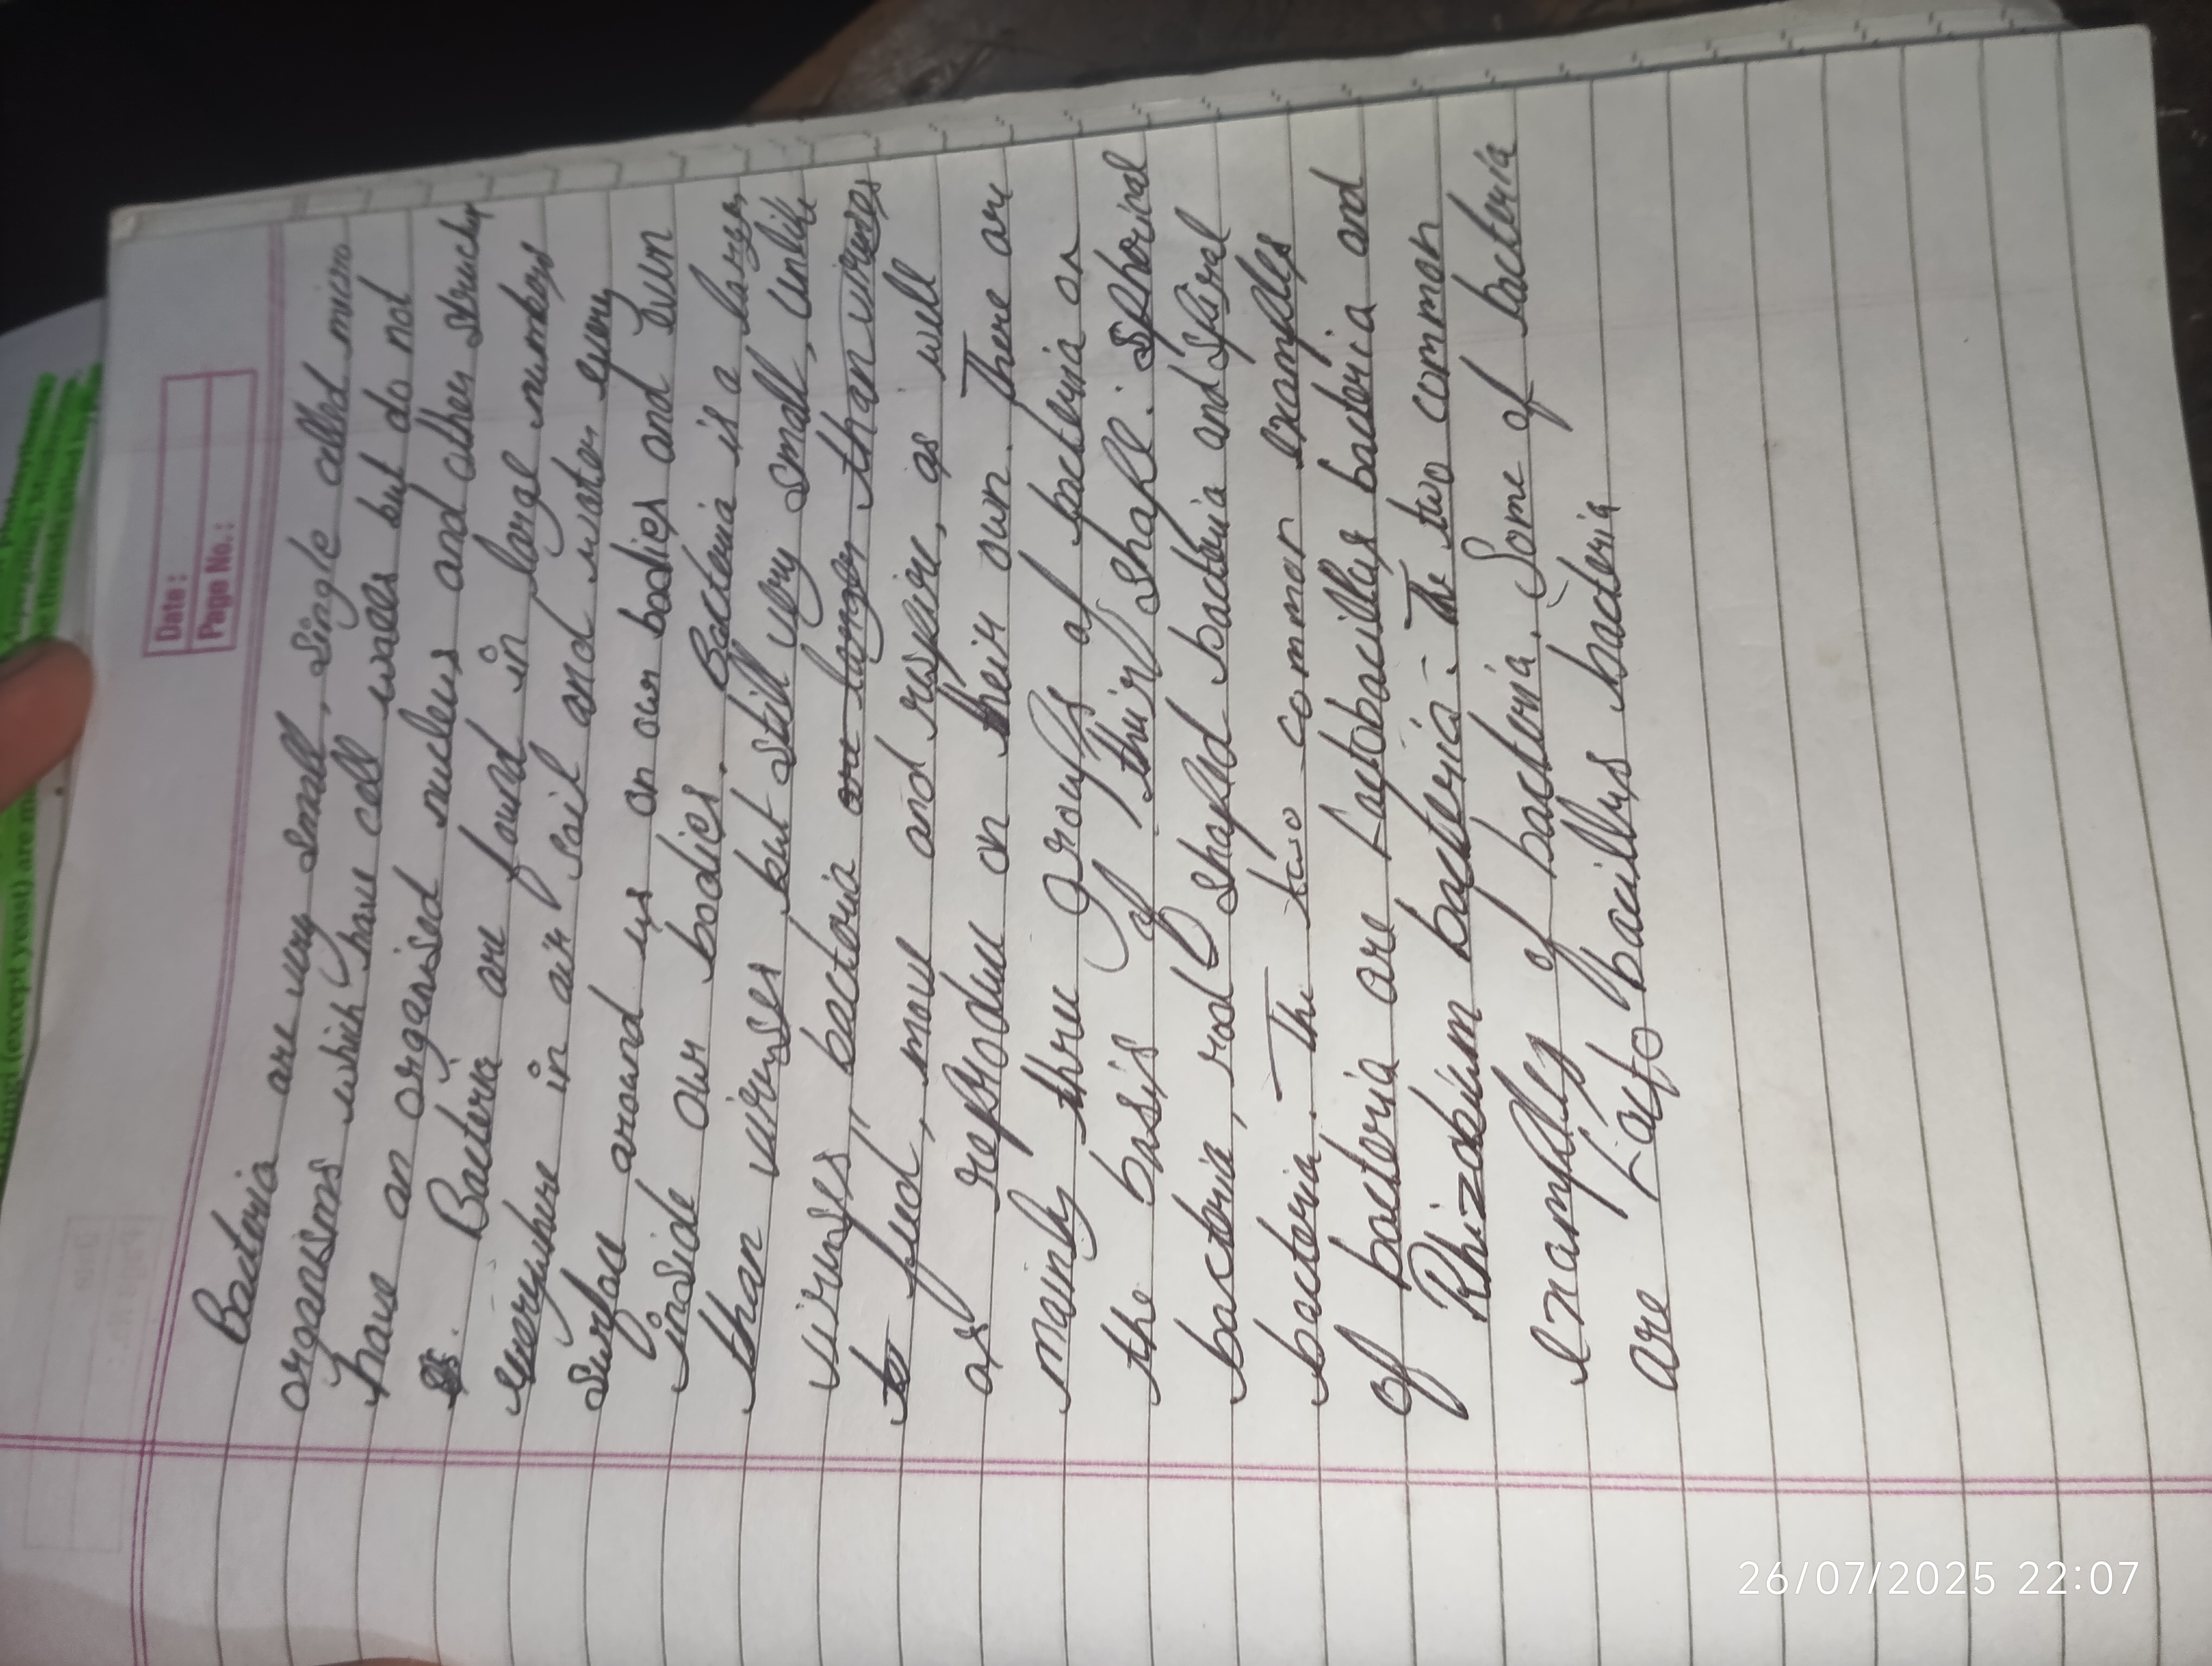 Date :
Page No. :
Bacteria are very small, single celled micro
organisms which have cell walls but do not
have an organised nucleus and other structur
. Bacteria are found in large numbers
everywhere in air soil and water every
surface around us on our bodies and even
inside our bodies. Bacteria is a larger
than viruses but still very small, unlike
viruses, bacteria are larger than viruses
to feed, move and respire, as well
as reproduce on their own. There are
mainly three groups of bacteria on
the basis of their shape. sphorical
bacteria, rod shaped bacteria and spiral
bacteria. The two common examples
of bacteria are Laytobacillus bacteria and
Rhizobium bacteria. The two common
examples of bacteria. Some of bacteria
are Lacto bacillus bacteria
fungi (except yeast) are
26/07/2025 22:07